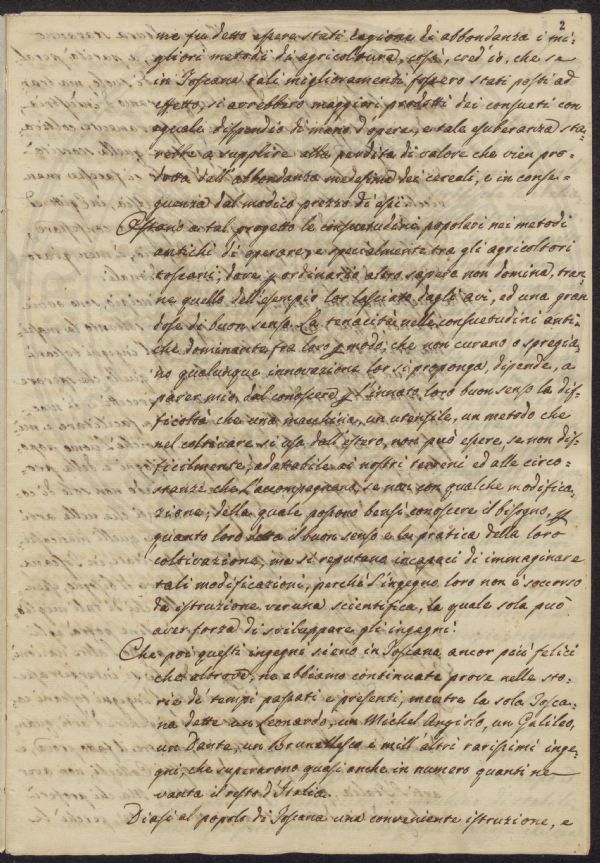 2
me fu detto essere stati cagione di abbondanza i mi-
gliori metodi di agricoltura, così, cred'io, che se
in Toscana tali miglioramenti fossero stati posti ad
effetto, si avrebbero maggiori prodotti dei consueti con
eguale dispendio di mano d'opera, e tale esuberanza sta-
rebbe a supplire alla perdita di valore che vien pro-
dotta dall'abbondanza medesima dei cereali, e in conse-
guenza dal modico prezzo di essi.
Ostano a tal progetto le consuetudini popolari nei metodi
antichi di operare, e specialmente tra gli agricoltori
toscani, dove p ordinario altro sapere non domina, tran-
ne quello dell'esempio lor lasciato dagli avi, ed una gran
dose di buon senso. La tenacità nelle consuetudini anti-
che dominante tra loro p modo, che non curano o spregia-
no qualunque innovazione lor si proponga, dipende, a
parer mio, dal conoscere p l'innato loro buon senso la dif-
ficoltà che una macchina, un utensile, un metodo che
nel coltivare si usa dall'estero, non può essere, se non dif-
ficilmente, adattabile ai nostri terreni ed alle circo-
stanze che l'accompagnano, se non con qualche modifica-
zione; della quale possono bensì conoscere il bisogno, p
quanto loro detta il buon senso e la pratica della loro
coltivazione, ma si reputano incapaci di immaginare
tali modificazioni, perché l'ingegno loro non è socorso
da istruzione veruna scientifica, la quale sola può
aver forza di sviluppare gli ingegni.
Che poi questi ingegni sieno in Toscana ancor più felici
che altrove, ne abbiamo continuate prove nelle sto-
rie de' tempi passati e presenti, mentre la sola Tosca-
na dette un Leonardo, un Michel Angiolo, un Galileo,
un Dante, un Brunellesco e mill'altri rarissimi inge-
gni, che superarono quasi anche in numero quanti ne
vanta il resto d'Italia.
Diasi al popolo di Toscana una conveniente istruzione, e